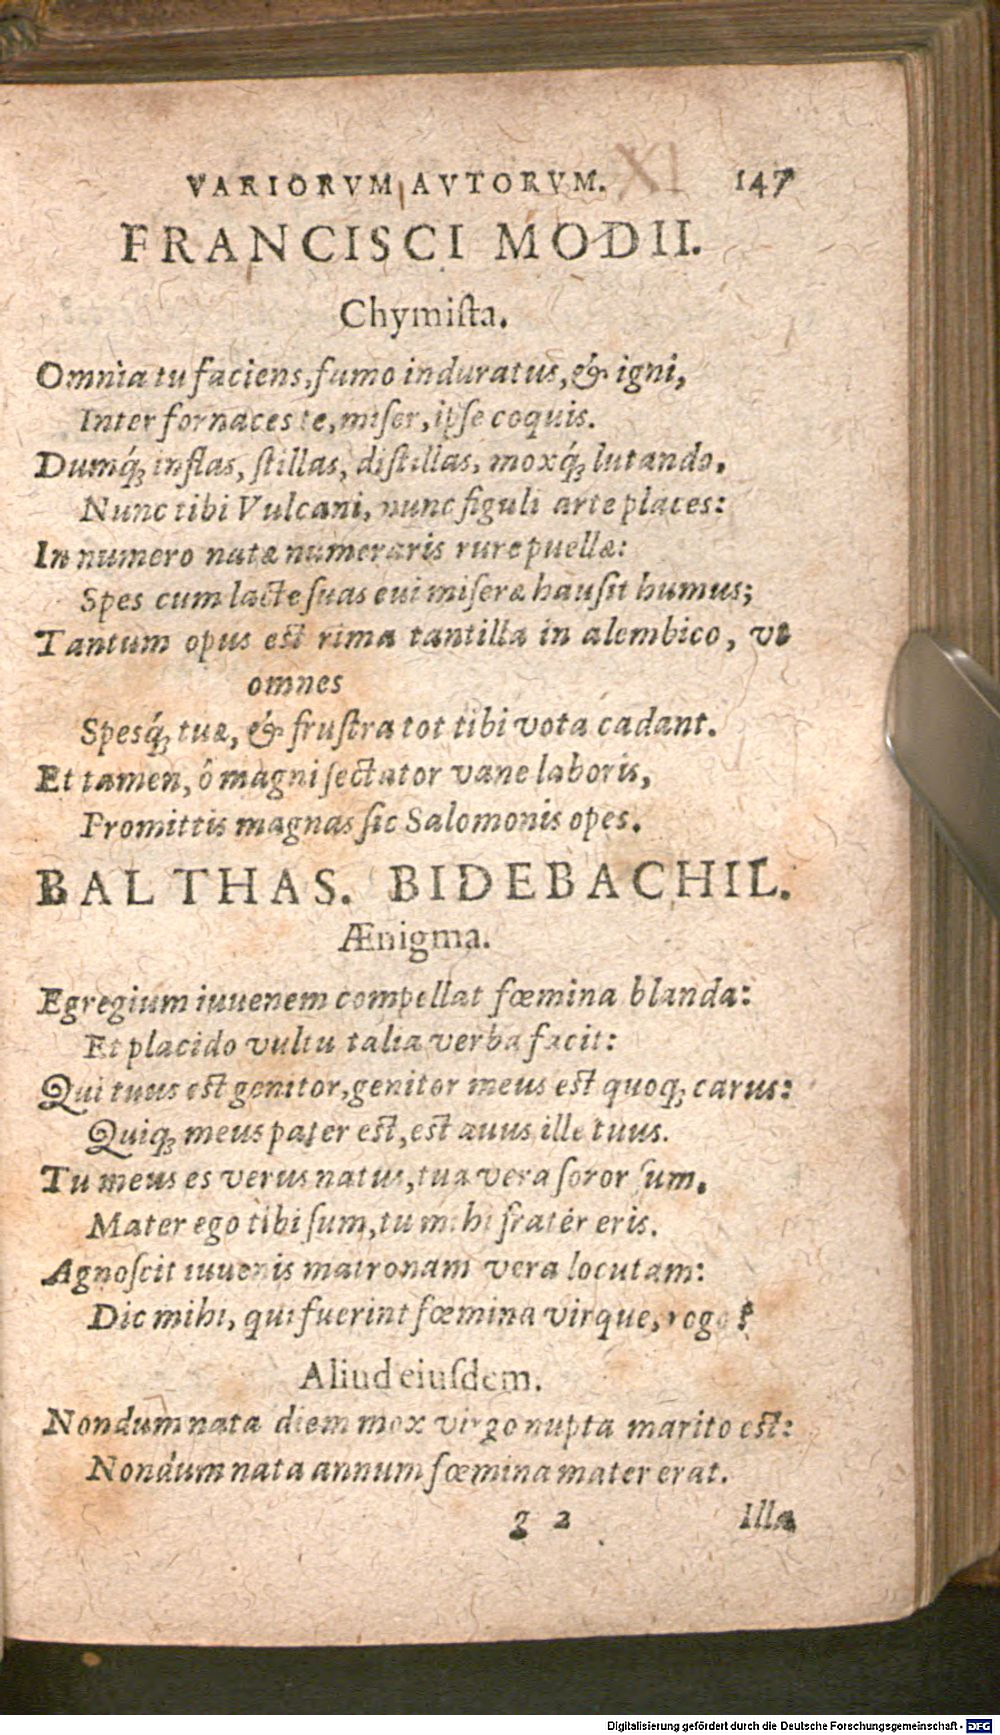 VARIORVM AVTORVM. XI 147
FRANCISCI MODII.
Chymiſta.
Omnia tu faciens, fumo induratus, & igni,
Inter fornaces te, miſer, ipſe coquis.
Dumq́; inflas, ſtillas, diſtillas, moxq́; lutando,
Nunc tibi Vulcani, nunc figuli arte places:
In numero natæ numeraris rure puellæ:
Spes cum lacte ſuas cui miſeræ hauſit humus;
Tantum opus eſt rima tantilla in alembico, vt
omnes
Spesq́; tuæ, & fruſtra tot tibi vota cadant.
Et tamen, ô magni ſectator vane laboris,
Promittis magnas ſic Salomonis opes.
BALTHAS. BIDEBACHII.
Ænigma.
Egregium iuuenem compellat fœmina blanda:
Et placido vultu talia verba facit:
Qui tuus eſt genitor, genitor meus eſt quoq; carus:
Quiq; meus pater eſt, eſt auus ille tuus.
Tu meus es verus natus, tua vera ſoror ſum,
Mater ego tibi ſum, tu mihi frater eris.
Agnoſcit iuuenis matronam vera locutam:
Dic mihi, qui fuerint fœmina virque, rogo?
Aliud eiuſdem.
Nondum nata diem mox virgo nupta marito eſt:
Nondum nata annum fœmina mater erat.
g 2 Illa
Digitalisierung gefördert durch die Deutsche Forschungsgemeinschaft - DFG